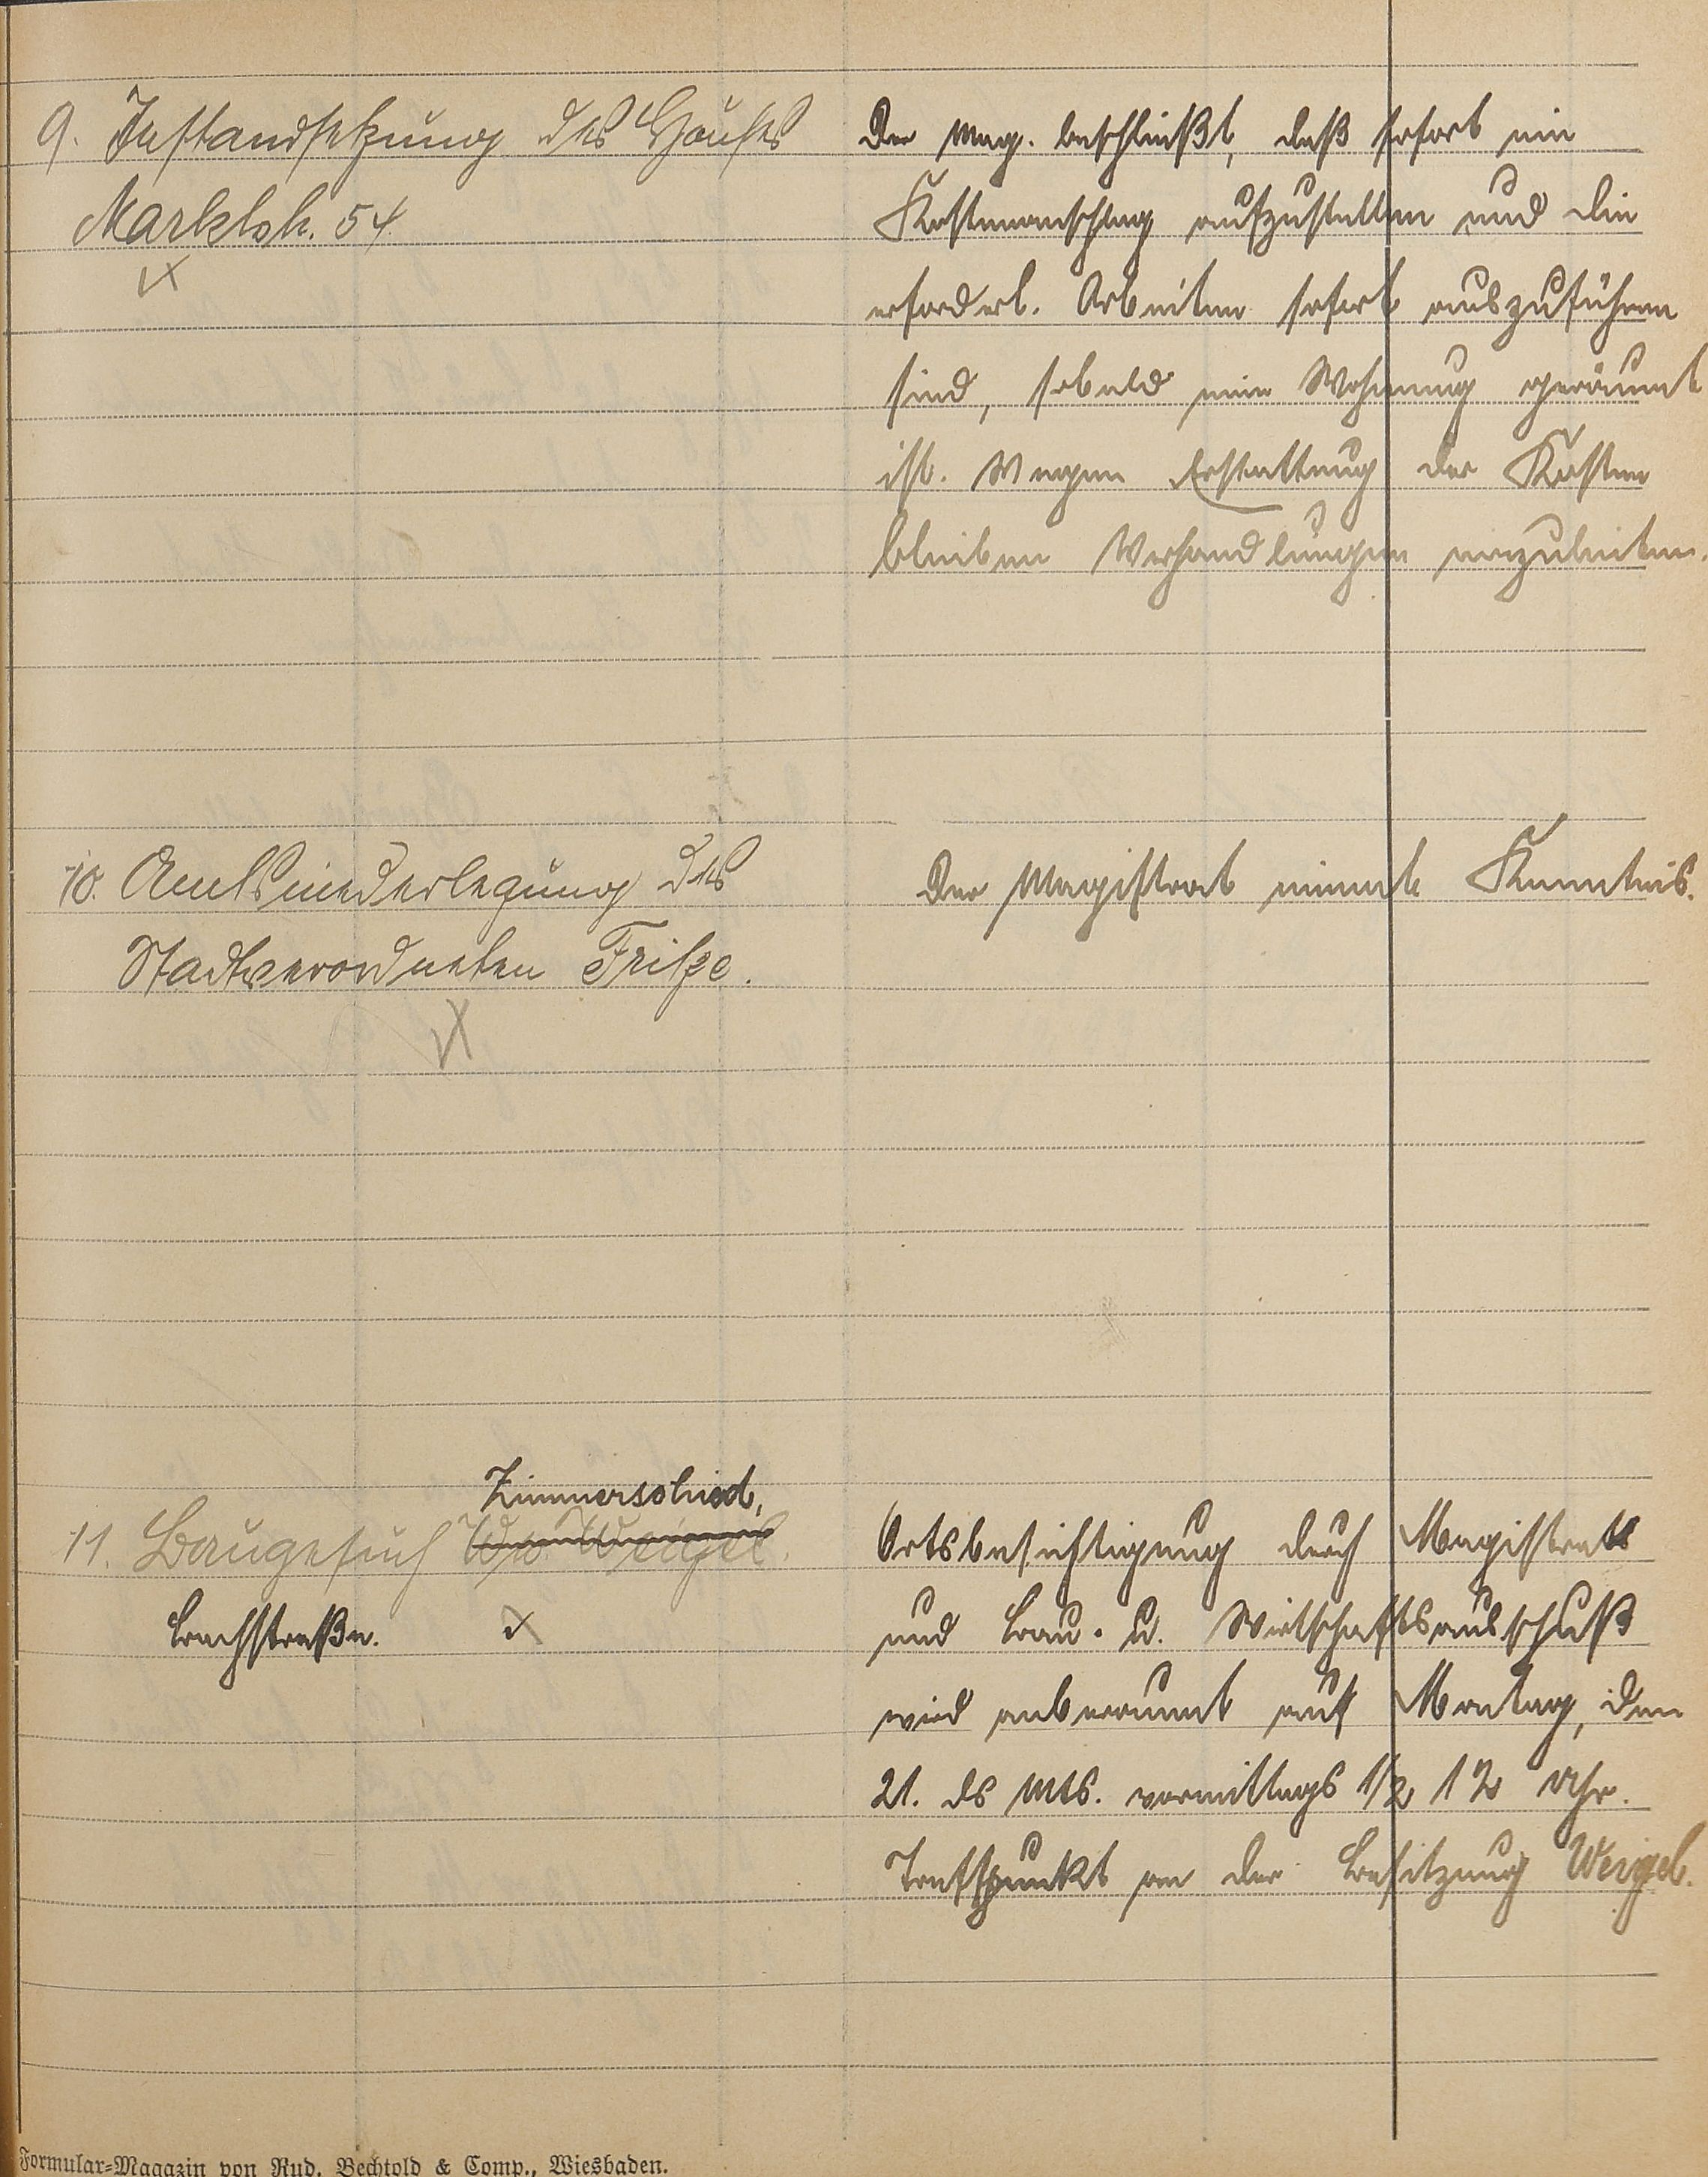 9. Instandsetzung des Hauses
Marktstr. 54
Der Mag. beschließt, daß sofort ein
Kostenanschlag aufzustellen und die
erforderl. Arbeiten sofort auszuführen
sind, sobald eine Wohnung geräumt
ist. Wegen Erstattung der Kosten
bleiben Verhandlungen einzuleiten.
10. Amtsniederlegung des
Stadtverordneten Fritze.
Der Magistrat nimmt Kenntnis.
Zimmerschied,
11. Baugesuch Ww. Weigel.
Bachstraße.
Ortsbesichtigung durch Magistrats
und Bau- u. Wirtschaftsausschuß
wird anberaumt auf Montag, den
21. ds Mts. vormittags 1/2 12 Uhr.
Treffpunkt an der Besitzung Weigel.
Formular-Magazin von Rud. Bechtold & Comp., Wiesbaden.